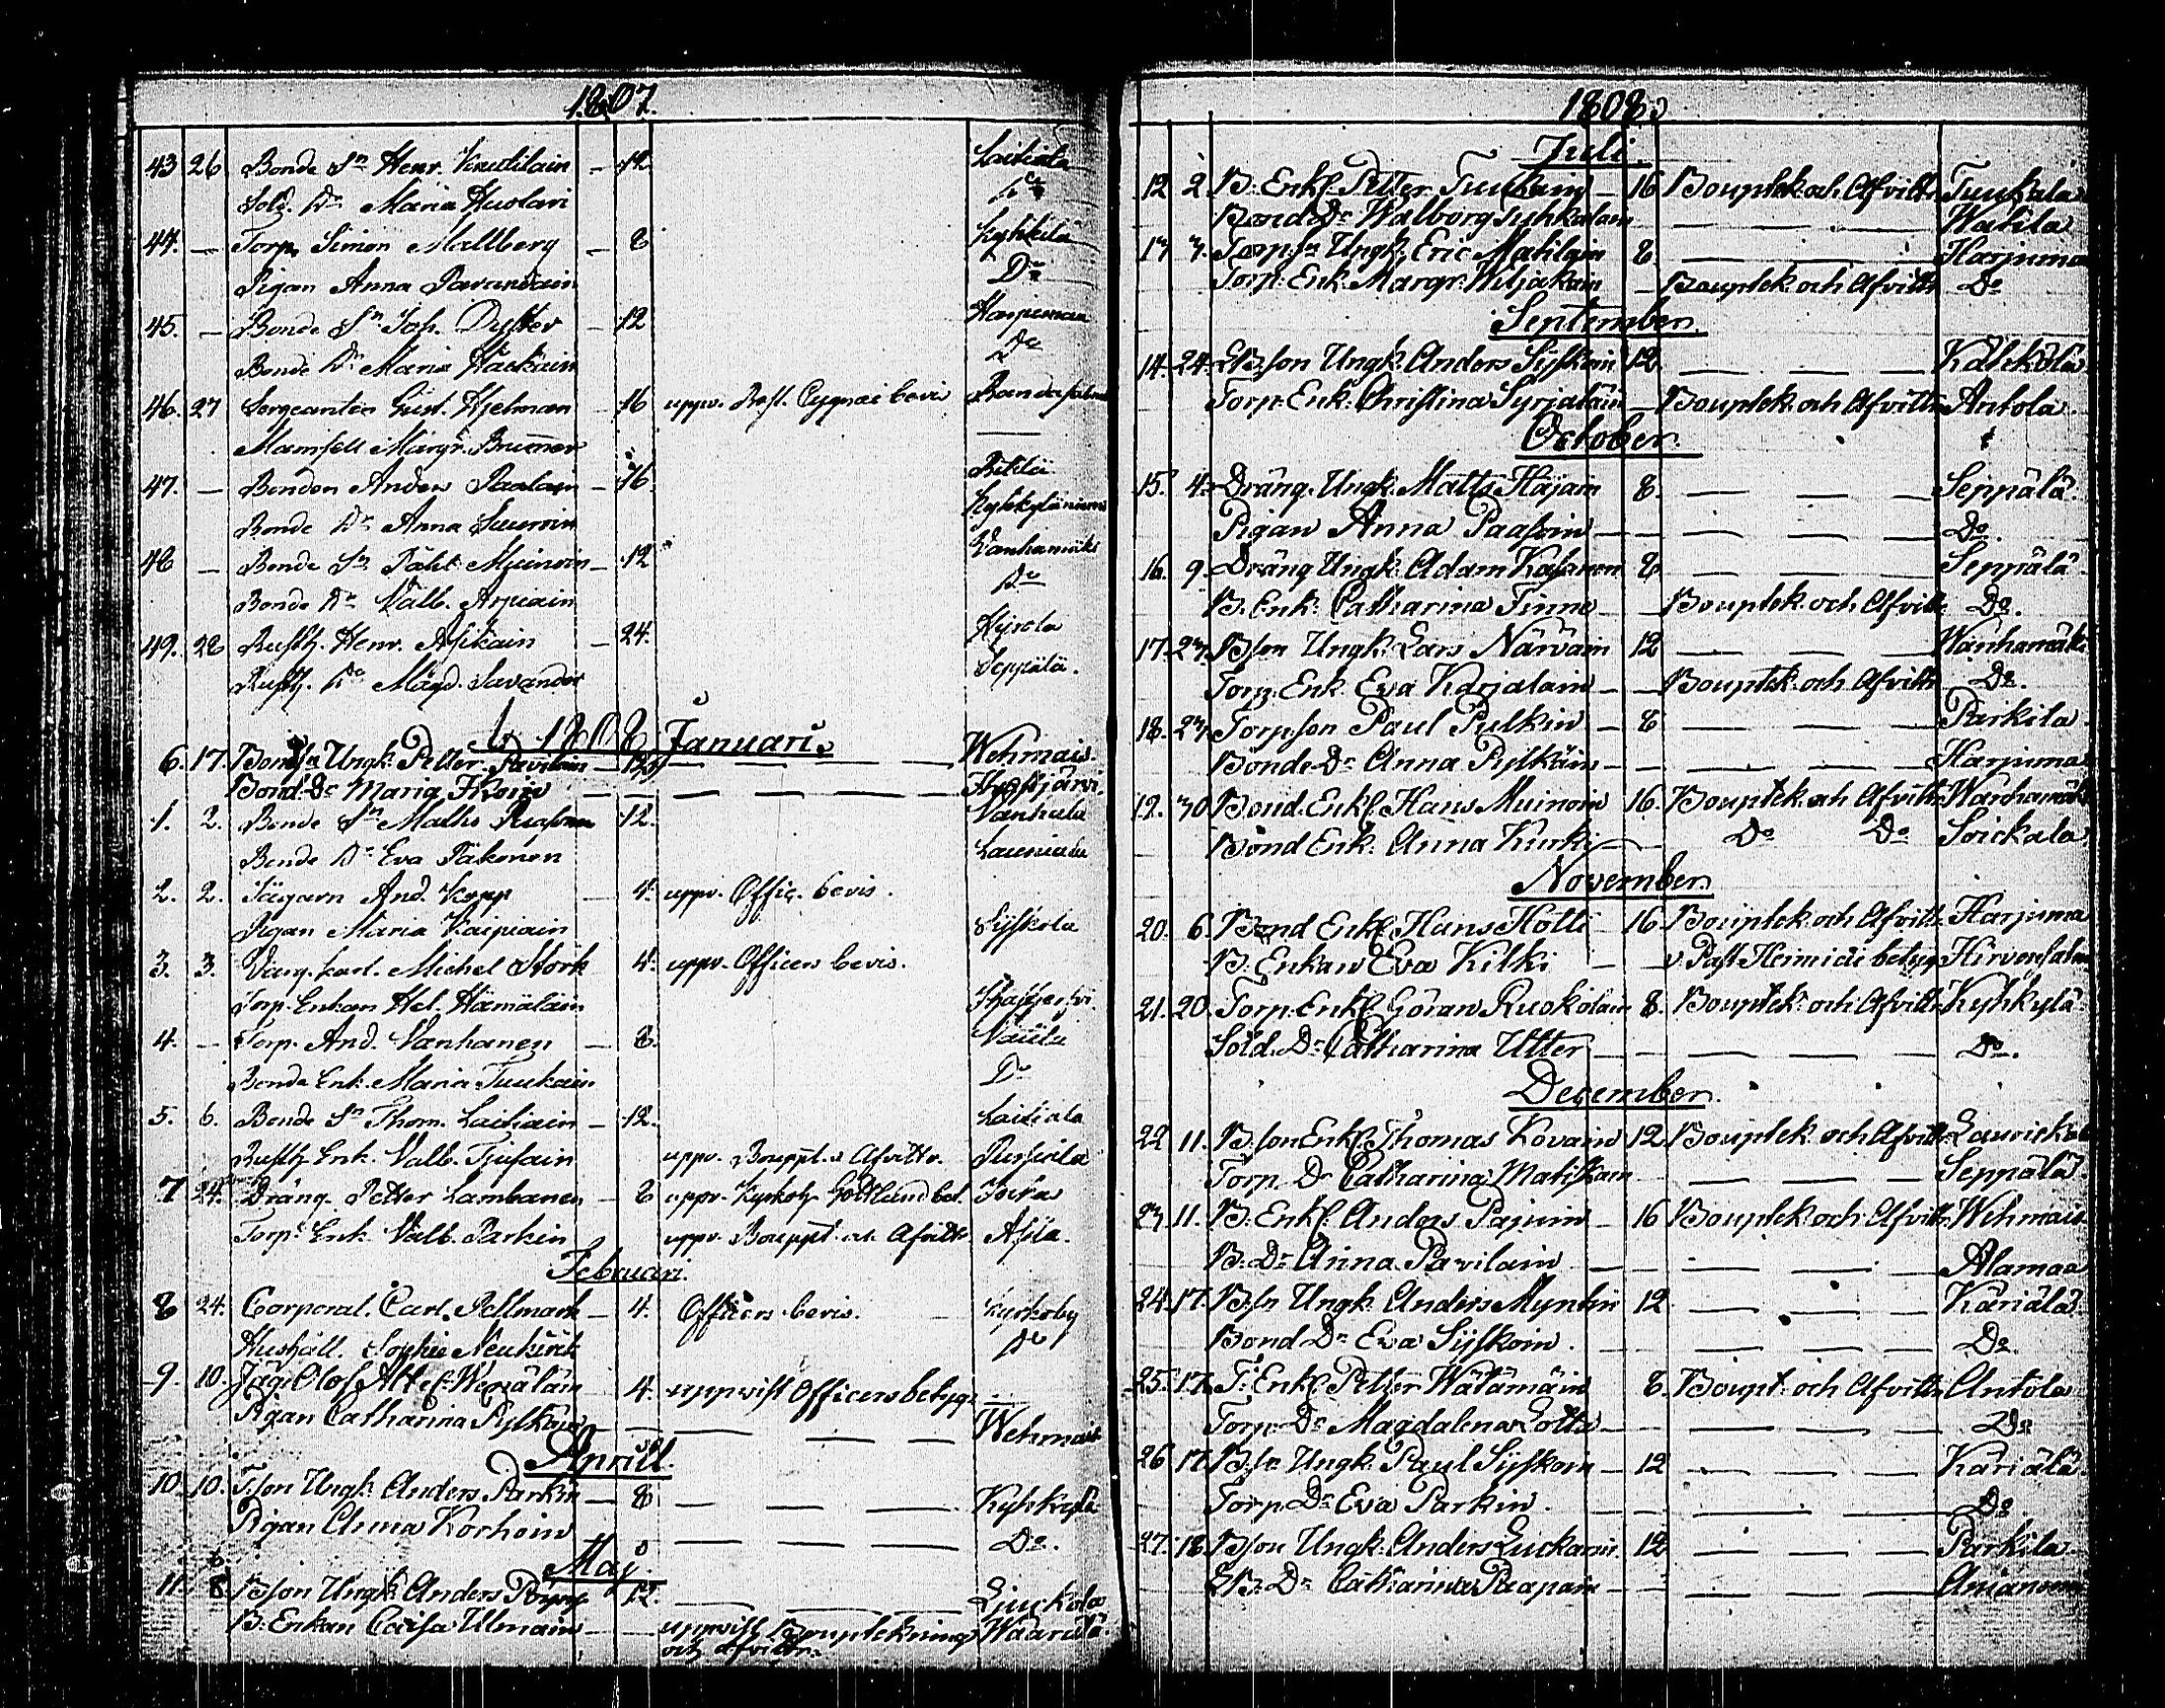 1807.
43 26 Bonde Sn Henr. Knutilain – 12 Laitiala
Sold. Dr Maria Huolari Do
44. — Torp. Simon Mallberg – 8 Kyhkilä
Pigan Anna Pavandain Do
45. — Bonde Sn Joh. Dyster – 12 Harjumaa
Bonde Dr Maria Häckäin Do
46. 27 Sergeanten Gust. Hjelman – 16 uppv. Past. Cygnæi bevis Randasalmi
Mamsell Margr. Brunner ——
47. — Bonden Anders Paalain – 16.
Bonde Dr Anna Sauroin Kyhkyläniemi
48 — Bonde Sn Påhl Muinoin – 12 Vanhamäki
Bonde Dr Valb. Arpiain Do
49. 28 Rusth. Henr. Asikain – 24. Hyrola
Rusth. Dr Magd. Savander Seppälä.
1808 Januari
6. 17. Bondsn Ungk. Petter Pavilain – 12 — — — — Wehmais.
Bond. Dr Maria Ikoin — — — — —
1. 2. Bonde Sn Maths Ruason 12. Vanhala
Bonde Dr Eva Päkonen Launiala
2. 2. Jägarn And. Kopp – 4. uppv. Offic. bevis.
Pigan Maria Kaipiain Syskola
3. 3. Varg. karl. Michel Stork 4. uppv. Officers bevis.
Torp. Enkan Hel. Hämäläin
4. — Torp. And. Vanhanen – 8.
Bonde Enk. Maria Tuukain Do
5. 6. Bonde Sn Thom. Laitiain – 12. Laitiala
Rusth. Enk. Valb. Tjusain uppv. Bouppt. o Afvittr.
7 24. Dräng. Petter Lambanen – 8 uppv. Kyrkoh. Gottlund bet. Jocka
Torp. Enk. Valb. Parkin uppv. Bouppt. och Afvittr. Asila.
Februari.
8 24. Corporal. Carl. Pellmark – 4. Officers bevis. Kyrkoby
Hushåll. Sophie Neukirck Do
9. 10. Jäg. Olof Wepsäläin – 4. uppvist Officers betyg. —
Pigan Catharina Pylkäin — — — — Wehmais
Aprill.
10 10. T.son Ungk. Anders Parkin – 8 — — — Kyhkylä
Pigan Anna Korhoin — — — — Do.
Maj.
11. 8. B.son Ungk. Anders Pöyry 12. — — — Liuckola
B. Enkan Caisa Ulmain — — uppvist Boupteckning Waarala
och afvittr.
1808.
Juli
12 2. B: Enkl. Petter Tuukain – 16 Bouptek. och Afvittr. Tuukala
Bond. Dr Walborg Suhkalain — — — — Watila
13 3. Torp. Sn Ungk. Eric Matilain 8. — — — Harjuma
Torp. Enk. Margr. Wiljakain – Bouptek. och Afvittr. Do
September.
14. 24. LB.son Ungk. Anders Syskoin 12 — — — — Kalckola
Torp. Enk. Christina Syrjäläin — Bouptek. och Afvittr. Antola
October.
15. 4. Dräng. Ungk. Matts Häjain 8. — — — Seppälä.
Pigan Anna Paasoin — — — — Do.
16. 9. Dräng Ungk. Adam Kasanen 8 — — — Seppälä
B. Enk. Catharina Tinne — Bouptek. och Afvittr. Do.
17. 23. B.son Ungk. Lars Närväin 12 — — — Wanhamäki
Torp. Enk. Eva Karjalain — — Bouptek. och Afvittr. Do.
18. 23. Torpson Paul Pulkin – 8 — — — Parkila
Bonde Dr Anna Pylkäin — — — — Harjuma
19. 30 Bond. Enkl. Hans Muinoin 16. Bouptek. och Afvittr. Wanhamäki
Bond Enk. Anna Kurki — Do Do Soickala
November.
20. 6. Bond Enkl. Hans Hotti – 16 Bouptek och Afvittr. Harjuma
B. Enkan Eva Kilki — — v. Past. Heinicii betyg Hirvensalmi
21. 20. Torp. Enkl. Göran Ruokolain 8. Bouptek. och Afvittr. Kyhkylä
Sold. Dr Catharina Utter — — — — Do.
December.
22 11. B.son Enkl. Thomas Kovain 12 Bouptek. och Afvittr.
Torp. Dr Catharina Matiskain — — — Seppälä
23 11. B. Enkl. Anders Pajuin – 16 Bouptek. och Afvittr. Wehmais
B. Dr Anna Pavilain — — — — Alamaa
24. 17. B.Sn Ungk. Anders Myntin 12 — — — Käriälä
Bond Dr Eva Syskoin. — — — Do.
25. 17. T. Enkl. Petter Wätämäin 8. Boupt. och Afvittr. Antola
Torp. Dr Magdalena Lotti — — — — Do
26 17. B.Sn Ungk. Paul Syskoin – 12 — — — Käriälä
Torp. Dr Eva Parkin. — — — Do
27. 18. B.son Ungk. Anders Luckarin. 12 — — — Parkila
LB. Dr Catharina Paapain — — — —